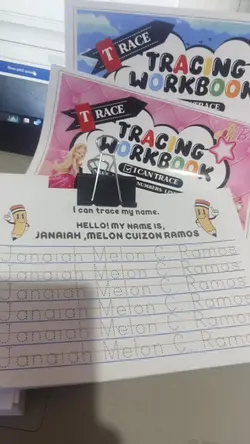 TRACE
TRACING
WORKBOOK
TRACE
TRACE
TRACING
WORKBOOK
I CAN TRACE
NUMBERS
I can trace my name.
HELLO! MY NAME IS,
JANAIAH ,MELON CUIZON RAMOS
Janaiah Melon C. Ramos
Janaiah Melon C. Ramos
Janaiah Melon C. Ramos
Janaiah Melon C. Ramos
Janaiah Melon C. Ramos
Janaiah Melon C. Ramo